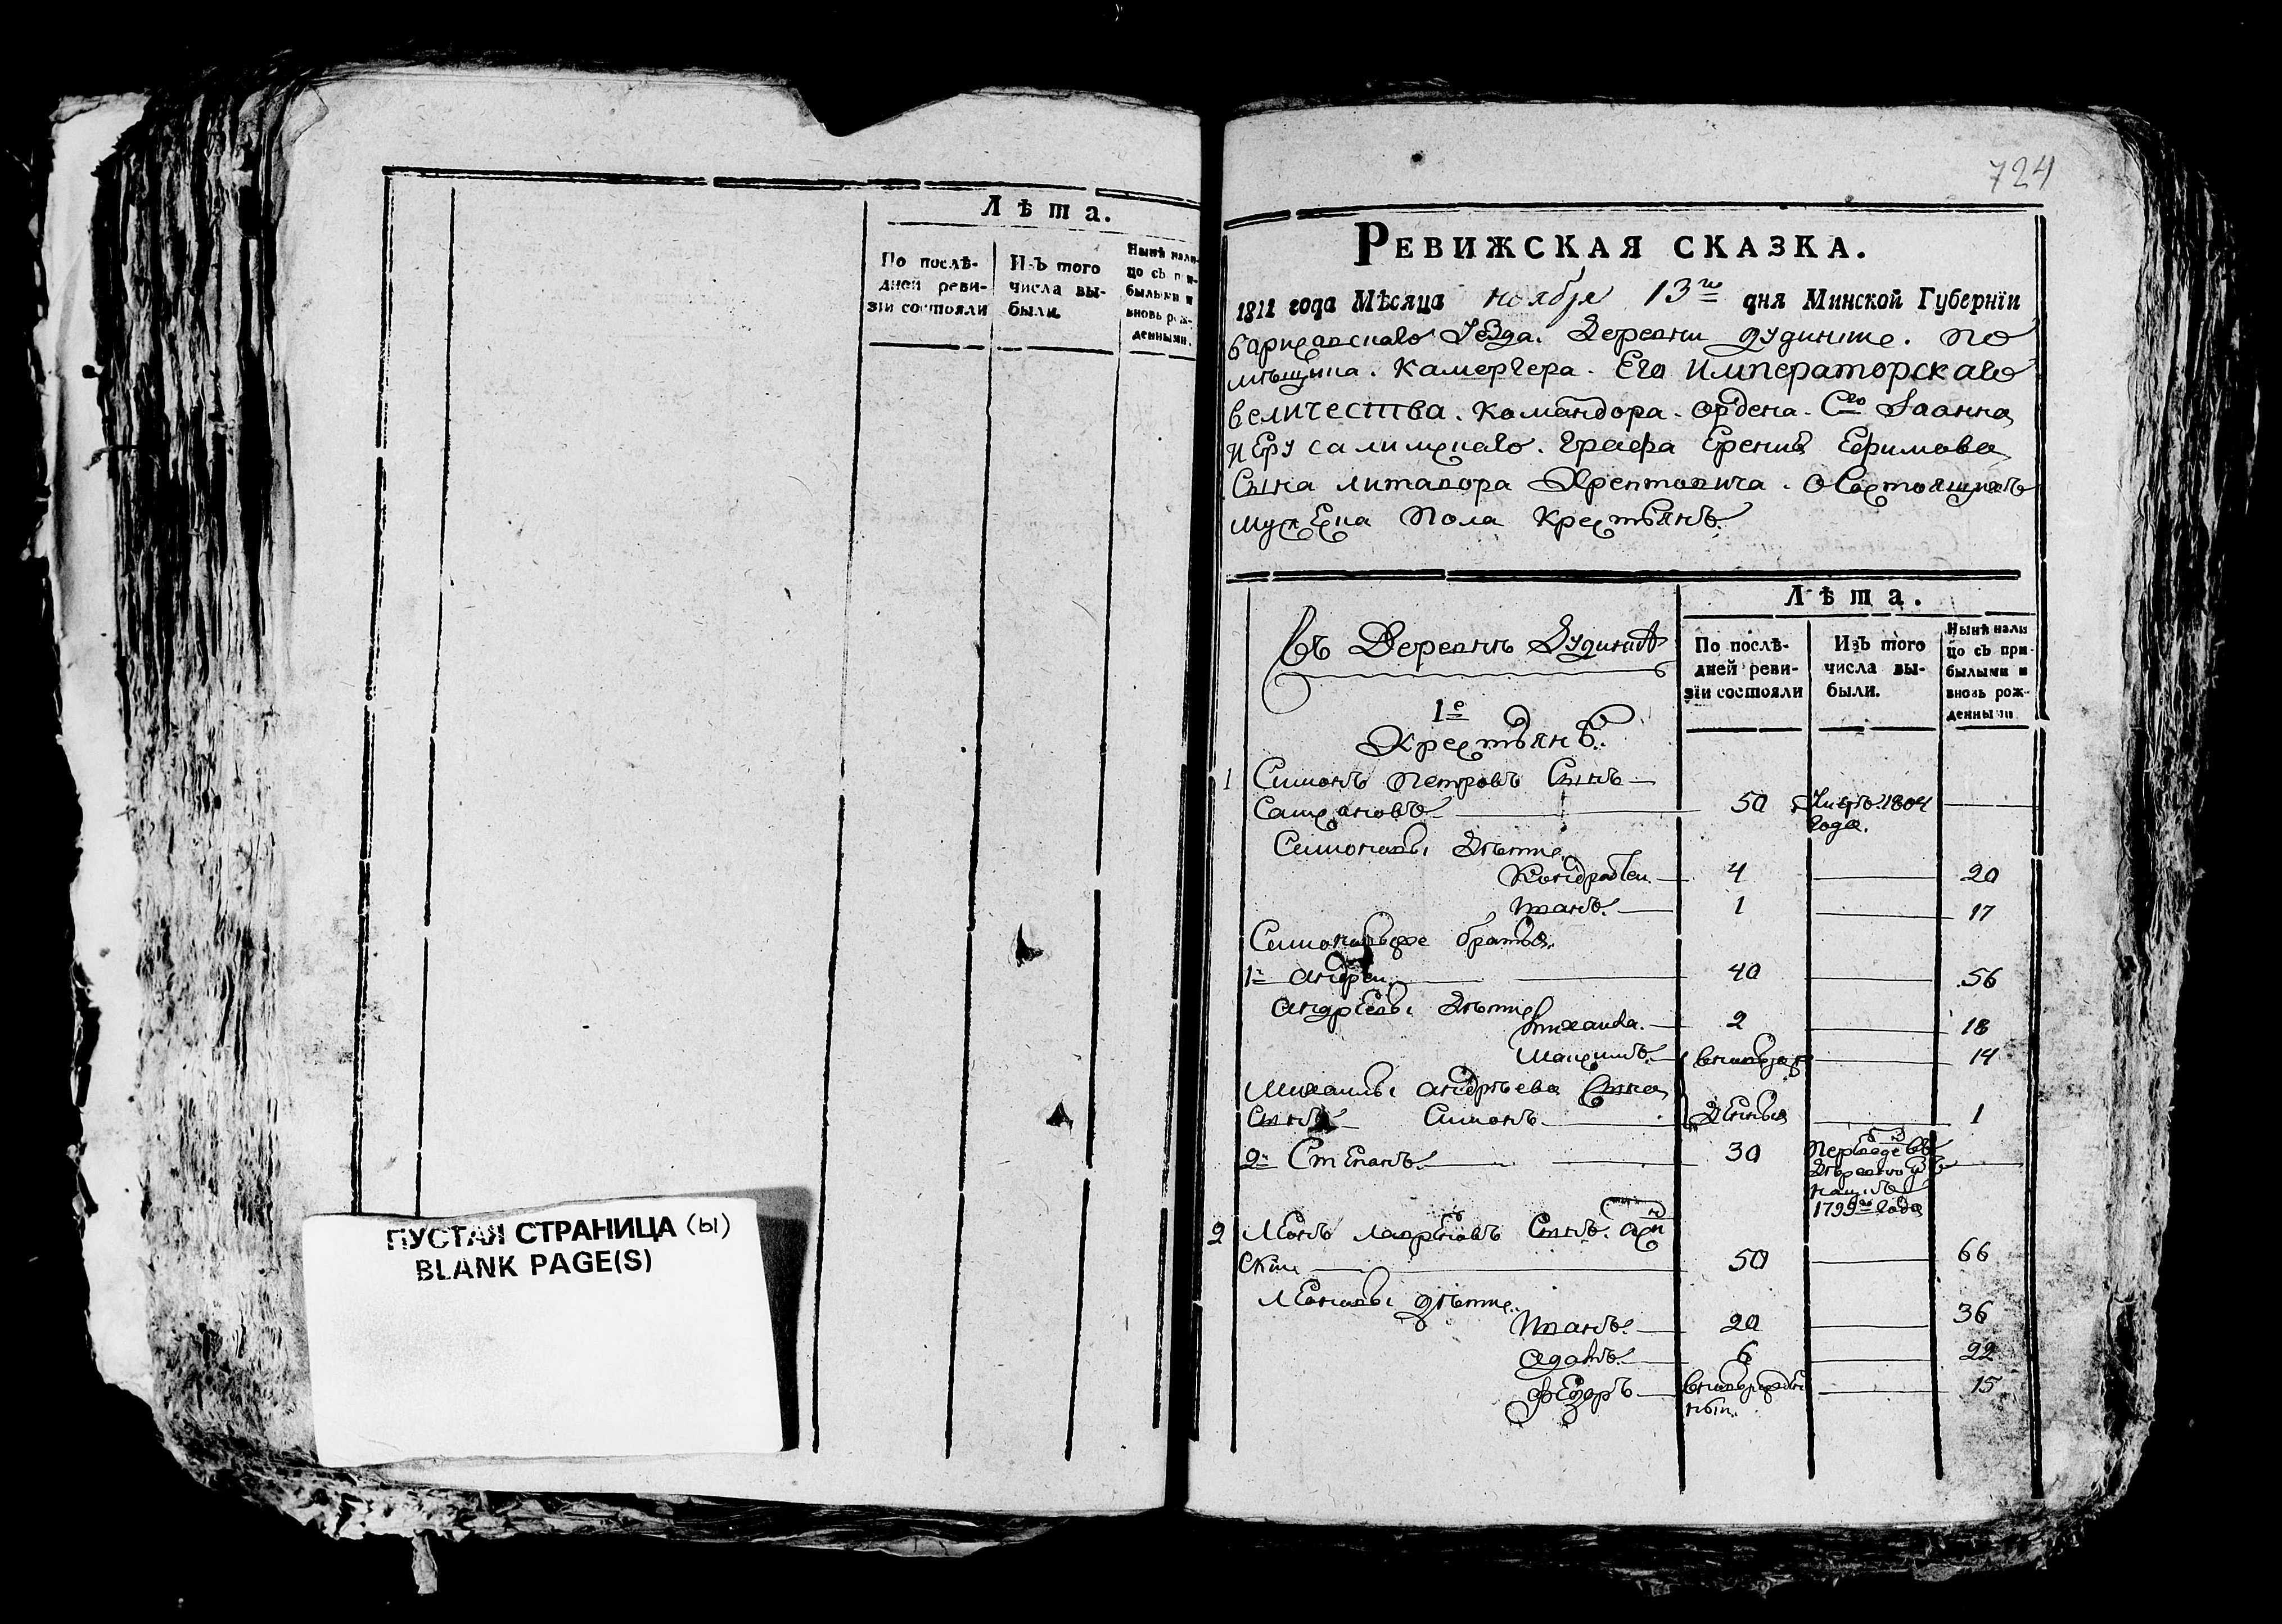 Лѣта.
По послѣ-
дней реви-
зіи состояли
Изъ того
числа вы-
были.
Нынѣ нали-
цо съ при-
былыми и
вновь рож-
денными.
ПУСТАЯ СТРАНИЦА (ы)
BLANK PAGE(S)
724
РЕВИЖСКАЯ СКАЗКА.
1811 года Мѣсяца ноября 13го дня Минской Губерніи
Борисовскаго Уезда. Деревни Дудинке. По
мѣщика. Камергера. Его Императорскаго
величества. Командора. Ордена. Сго Іоанна
иЕрусалимскаго. Графа Ерения Ефимова
Сына Литавора Хрептовича. О Состоящихъ
мужеска Пола Крестьянъ.
Въ Деревнѣ Дудинкѣ
Лѣта.
По послѣ-
дней реви-
зіи состояли
Изъ того
числа вы-
были.
Нынѣ нали
цо съ при-
былыми и
вновь рож-
денными
1е
Крестьянъ.
1 Симонъ Петровъ Сынъ
50 1804
года.
Симоновы Дѣти.
Кондратеи 4 20
Иванъ. 1 17
братья.
1й Андреи 40 56
Андреевы Дѣти
Михаила. 2 18
Максимъ. вновьрож 14
Михаилы Андрѣева Сына
Сынъ Симонъ. денныя 1
2й Степанъ. 30
1799го года
2 Леонъ Лавреновъ Сынъ.
ски 50 66
Леоновы дѣти.
Иванъ. 20 36
Адамъ. 6 22
Федоръ вновьрожден 15
ныи.